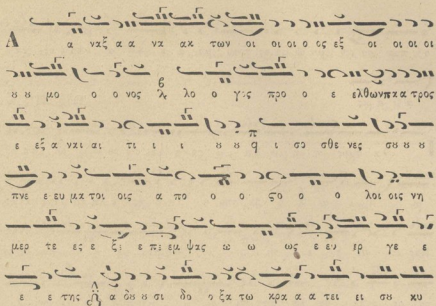 Α α ναξ α α να ακ των οι οι οι ο ος εξ οι οι οι οι
ȣ ȣ μο ο ο νος λ λο ο γος προ ο ε ελθων πα α τρος
ε εξ α ναι αι τι ι ι ȣ ȣ ϥ ι σο σθε νες σȣ ȣ ȣ
πνε ε ευ μα τοι οις α πο ο ο ςο ο ο λοι οις νη
μερ τε ες ε ξε ε πε εμ ψας ω ω ως ε ευ ερ γε ε
ε ε της α δȣ ȣ σι δο ο ξα τω κρα α α τει ει σȣ κυ